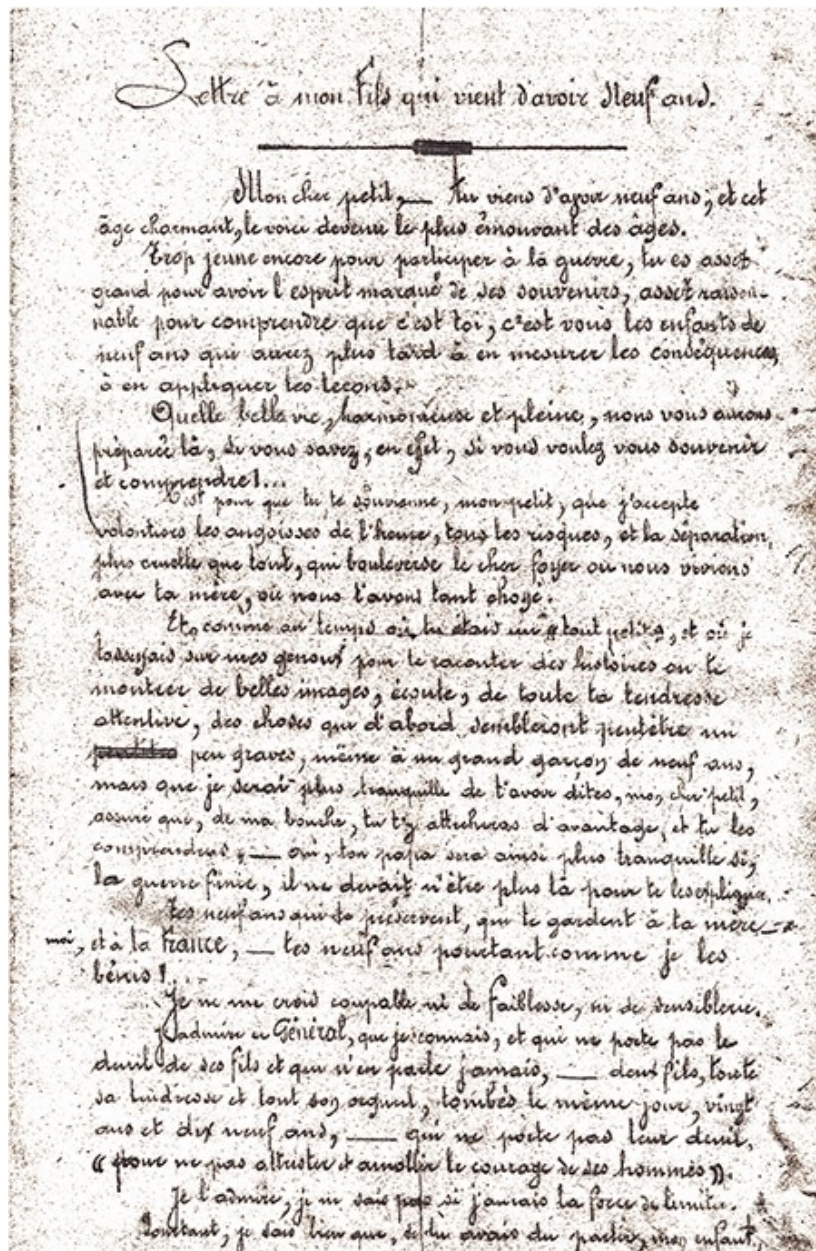 Lettre à mon Fils qui vient d'avoir Neuf ans.
Mon cher petit, — tu viens d'avoir neuf ans; et cet
âge charmant, le voici devenu le plus émouvant des âges.
Trop jeune encore pour participer à la guerre, tu es assez
grand pour avoir l'esprit marqué de ses souvenirs, assez raison-
nable pour comprendre que c'est toi, c'est vous les enfants de
neuf ans que aurez plus tard à en mesurer les conséquences,
à en appliquer les leçons.
Quelle belle vie, harmonieuse et pleine, nous vous aurons
préparée là, si vous savez, en effet, si vous voulez vous souvenir
et comprendre!...
C'est pour que tu te souvienne, mon petit, que j'accepte
volontiers les angoisses de l'heure, tous les risques, et la séparation,
plus cruelle que tout, qui bouleverse le cher foyer où nous vivions
avec ta mère, où nous t'avons tant choyé.
Et, comme au temps où tu étais un "tout petit", et où je
t'assayais sur mes genoux pour te raconter des histoires ou te
montrer de belles images, écoute, de toute ta tendresse
attentive, des choses qui d'abord sembleront peutêtre un
peu graves, même à un grand garçon de neuf ans,
mais que je serai plus tranquille de t'avoir dites, mon cher petit,
assuré que, de ma bouche, tu t'y attacheras d'avantage, et tu les
comprendras, — oui, ton papa sera ainsi plus tranquille si,
la guerre finie, il ne devait n'être plus là pour te les expliquer.
Tes neuf ans qui te préservent, qui te gardent à ta mère, à
moi, et à la France, — tes neuf ans pourtant comme je les
bénis!
Je ne me crois coupable ni de faiblesse, ni de sensiblerie.
J'admire ce Général, que je connais, et qui ne porte pas le
deuil de ses fils et qui n'en parle jamais, — deux fils, toute
sa tendresse et tout son orgueil, tombés le même jour, vingt
ans et dix neuf ans, — qui ne porte pas leur deuil,
"pour ne pas attrister et amollir le courage de ses hommes".
Je l'admire, je ne sais pas si j'aurais la force de l'imiter.
Pourtant, je sais bien que, si tu avais du partir, mon enfant,